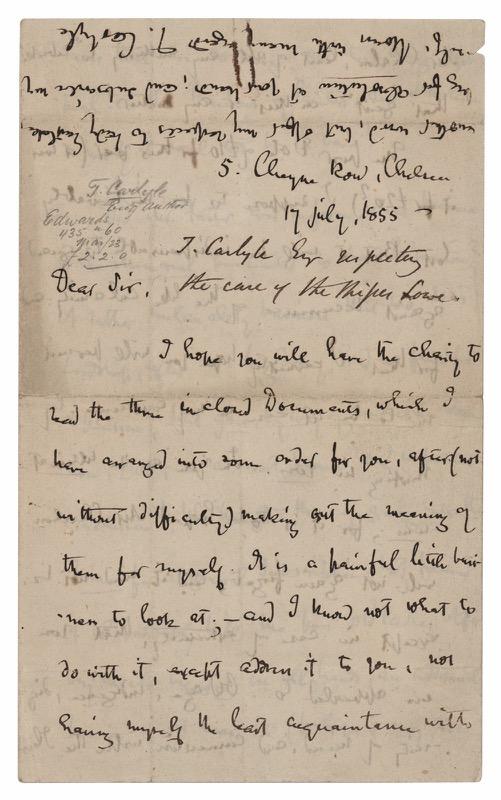 another word, but offer my respects to Lady Eastlake,
beg for absolution at your hands; and subscribe my
-self, Yours with many regards T. Carlyle
5. Cheyne Row, Chelsea
17 july, 1855 –
T. Carlyle
Eng author
Edwards
435 60
Mar/23
2.2.0
T. Carlyle Esq respecting
the case of the Misses Lowe.
Dear Sir,
I hope you will have the charity to
read the three inclosed Documents, which I
have arranged into some order for you, after (not
without difficulty) making out the meaning of
them for myself. It is a painful little busi-
-ness to look at; – and I know not what to
do with it, except address it to you, not
having myself the least acquaintance with